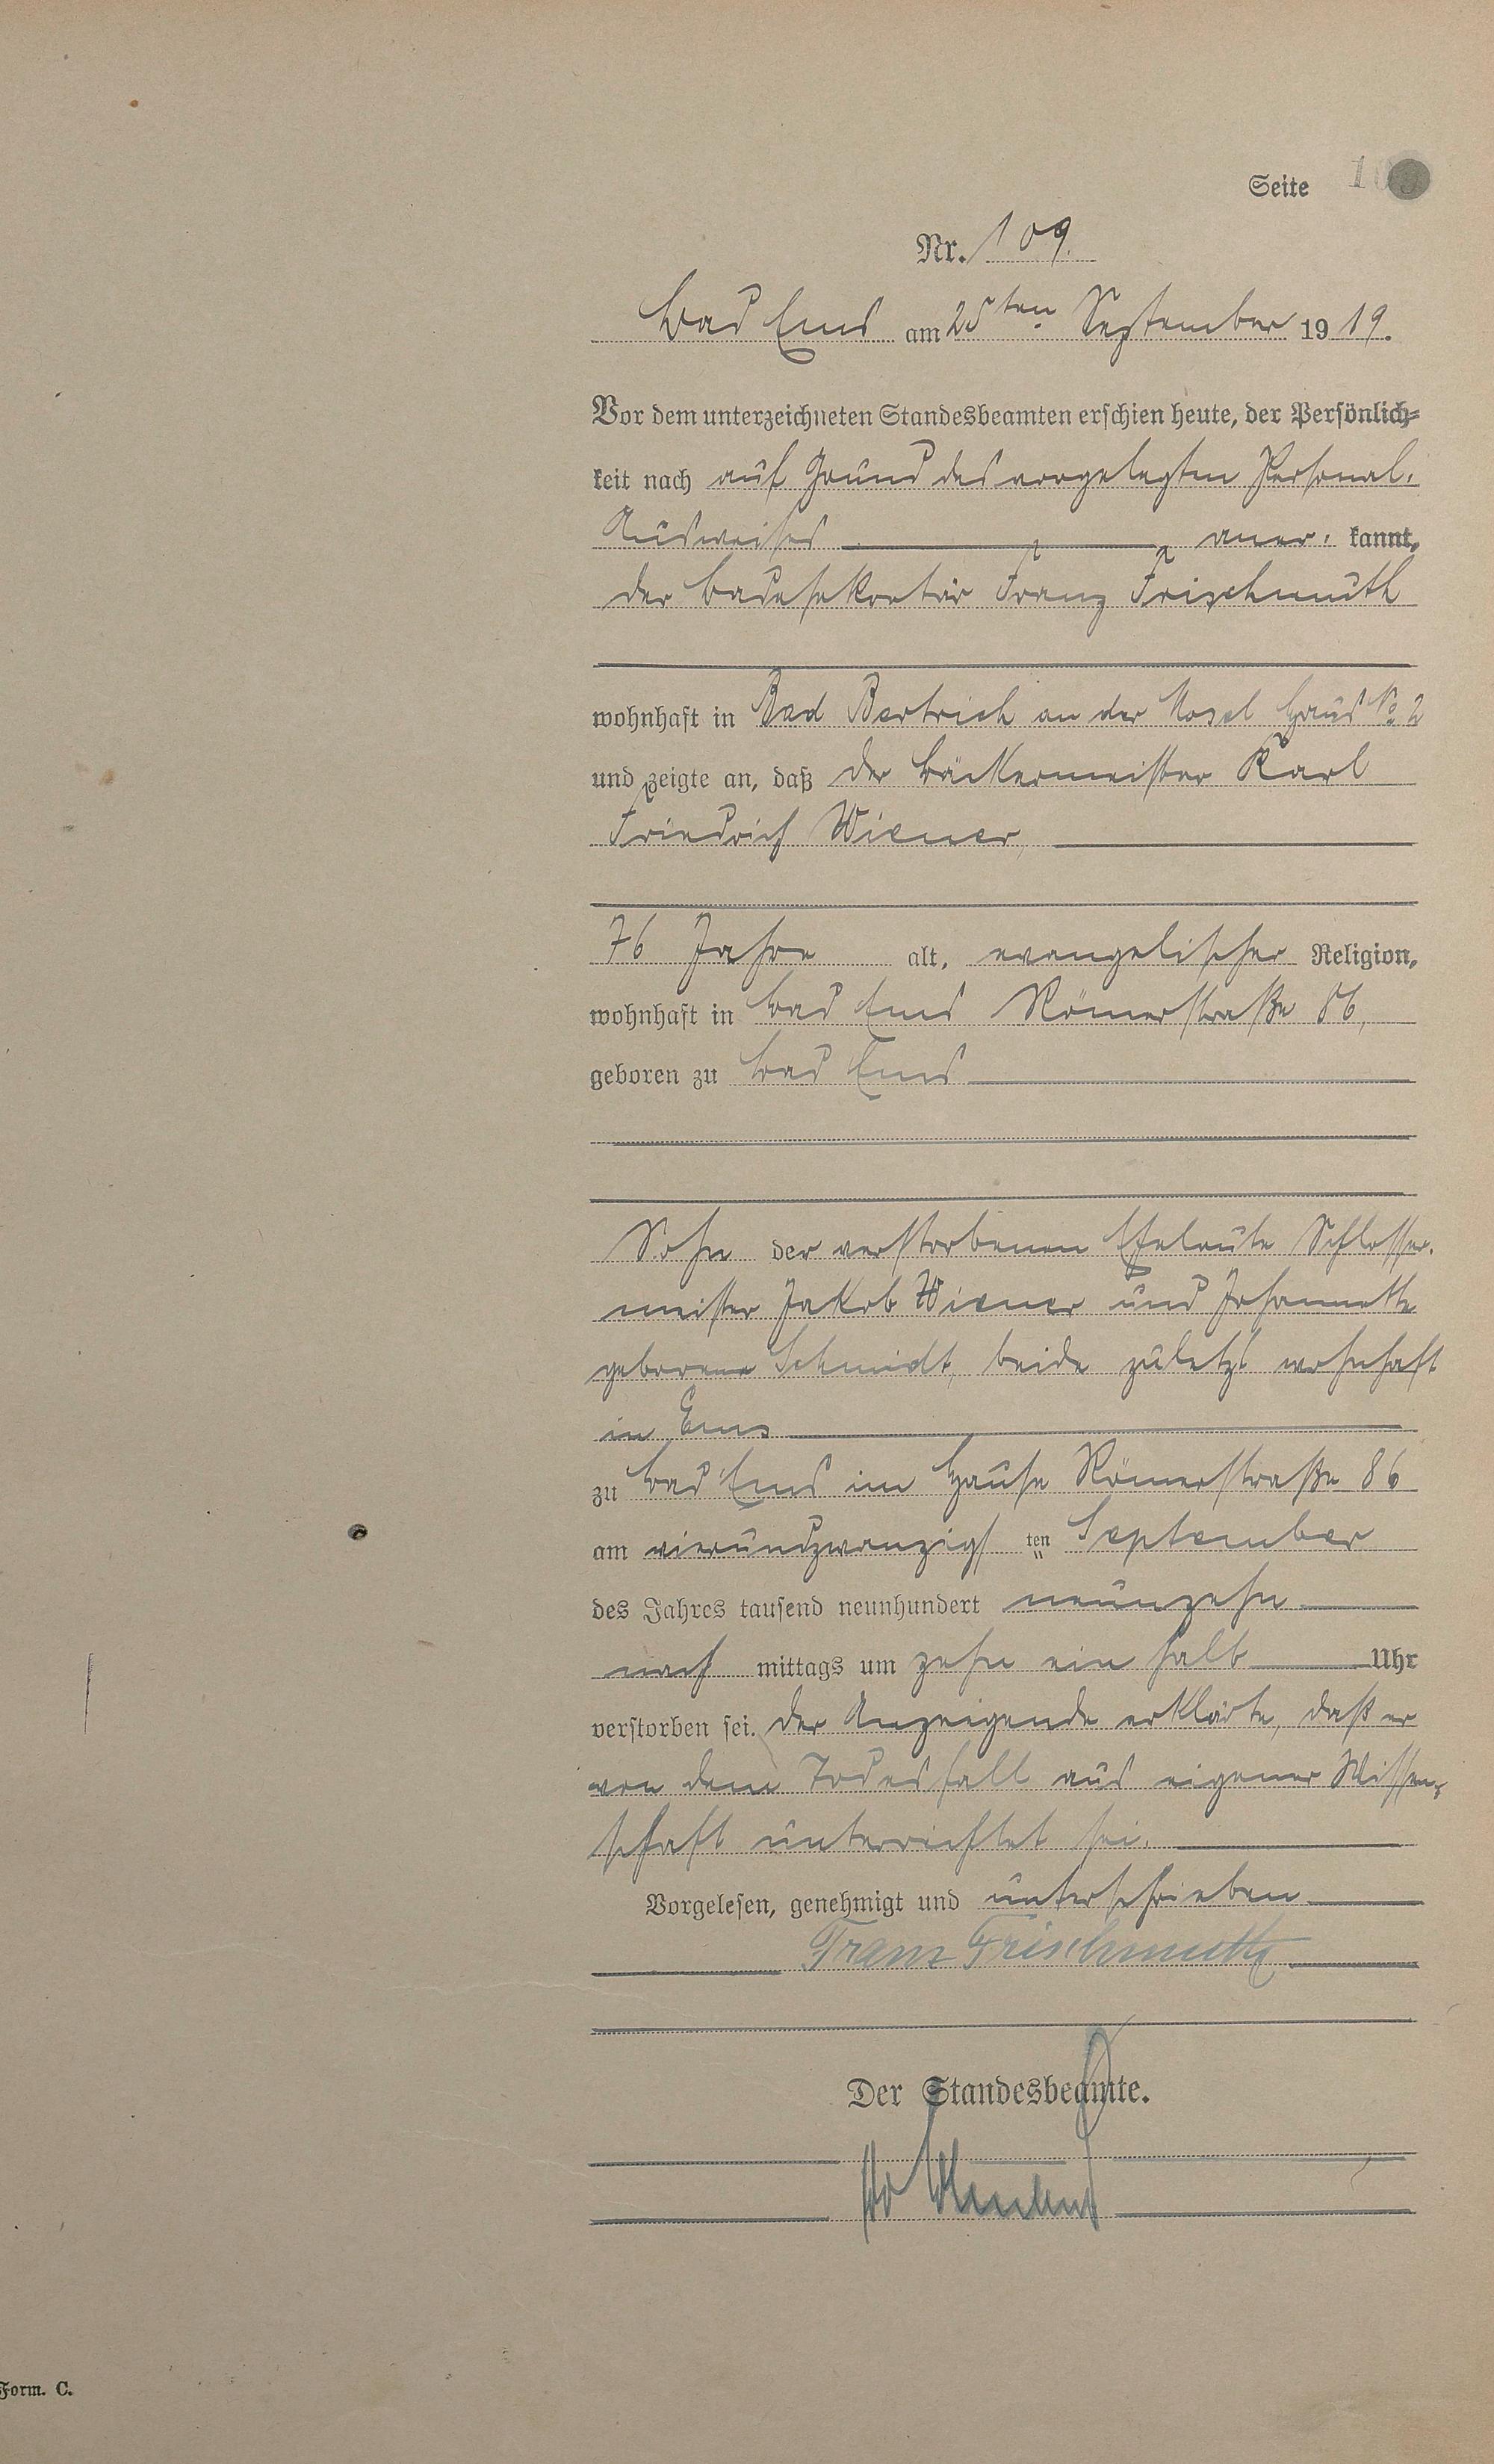 Seite 109
Nr. 109.
Bad Ems am 25ten September 1919.
Vor dem unterzeichneten Standesbeamten erschien heute, der Persönlich-
keit nach auf Grund des vorgelegten Personal-
Ausweises aner- kannt,
der Badesekretär Franz Frischmuth
wohnhaft in Bad Bertrich an der Mosel Haus No 2
und zeigte an, daß der Bäckermeister Karl
Friedrich Wiener,
76 Jahre alt, evangelischer Religion,
wohnhaft in Bad Ems Römerstraße 86,
geboren zu Bad Ems
Sohn der verstorbenen Eheleute Schlosser-
meister Jakob Wiener und Johannette
geborene Schmidt, beide zuletzt wohnhaft
in Ems
zu Bad Ems im Hause Römerstraße 86
am vierundzwanzigsten September
des Jahres tausend neunhundert neunzehn
nach mittags um zehn ein halb Uhr
verstorben sei. Der Anzeigende erklärte, daß er
von dem Todesfall aus eigener Wissen-
schaft unterrichtet sei.
Vorgelesen, genehmigt und unterschrieben
Franz Frischmuth
Der Standesbeamte.
Form. C.